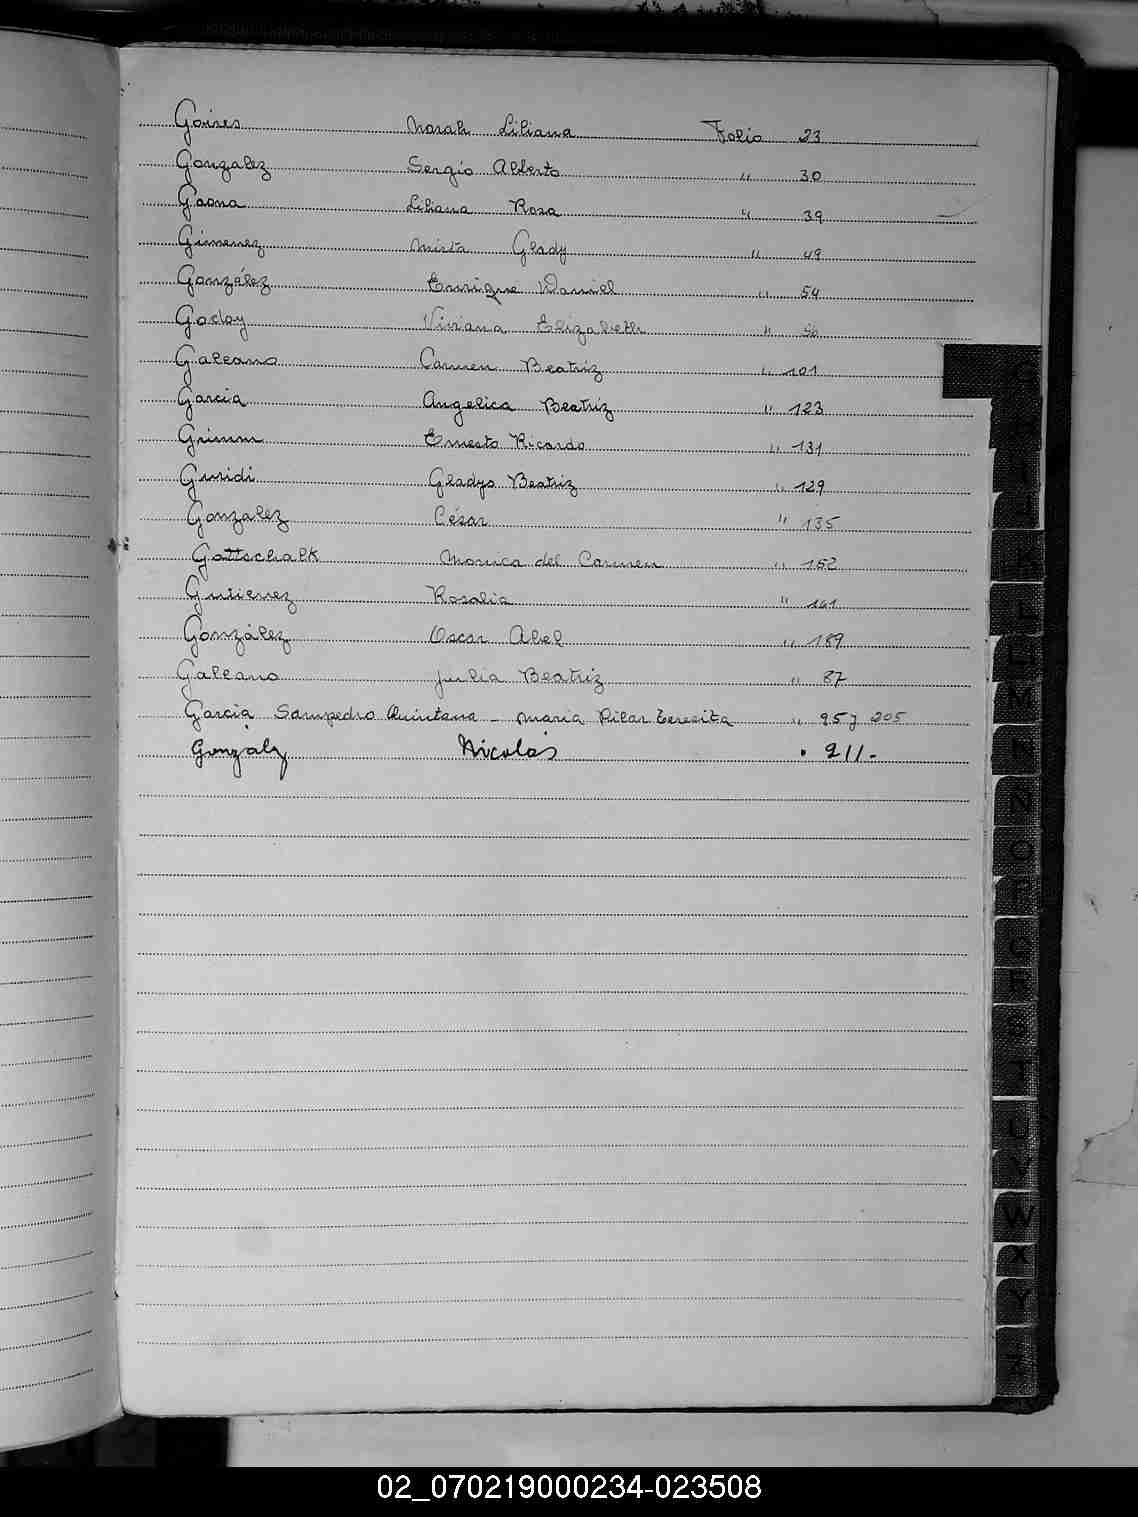 Goires Norah Liliana Folio 23
Gonzalez Sergio Alberto " 30
Gaona Liliana Rosa " 39
Gimenez Mirta Glady " 49
González Enrique Daniel " 54
Godoy Viviana Elizabeth "
Galeano Carmen Beatriz " 101
Garcia Angelica Beatriz " 123
Grimm Ernesto Ricardo " 131
Guridi Gladys Beatriz " 129
Gonzalez César " 135
Gattschalk Monica del Carmen " 152
Gutierrez Rosalia " 161
González Oscar Abel " 189
Galeano Julia Beatriz " 87
Garcia Sampedro Quintana - Maria Pilar Teresita " 95 y 205
Gonzalz Nicolás " 211.-
W
X
Y
Z
02_070219000234-023508